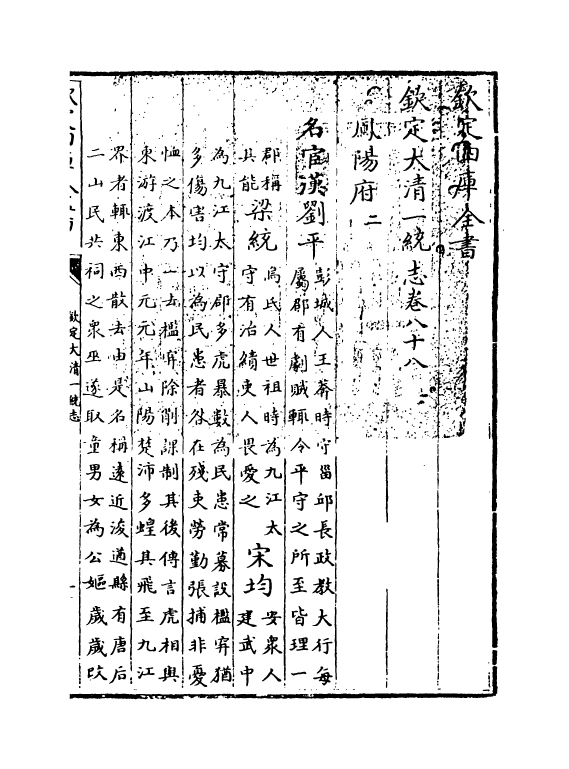 欽定四庫全書
欽定大清一統志卷八十八
鳳陽府二
名宦漢劉平
彭城人王莽時守菑邱長政教大行每
屬郡有劇賊輒令平守之所至皆理一
郡稱
其能
梁統
烏氏人世祖時為九江太
守有治績吏人畏愛之
宋均
安衆人
建武中
為九江太守郡多虎暴數為民患常募設檻穽猶
多傷害均以為民患者咎在殘吏勞勤張捕非憂
恤之本乃一去檻穽除削課制其後傳言虎相與
東游渡江中元元年山陽楚沛多蝗其飛至九江
界者輒東西散去由是名稱遠近浚遒縣有唐后
二山民共祠之衆巫遂取童男女為公嫗歲歲改
欽定大清一統志